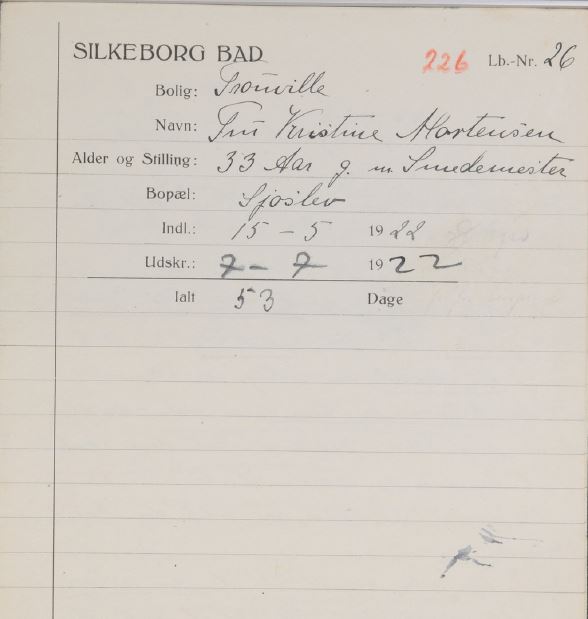 SILKEBORG BAD 226 Lb.-Nr. 26
Bolig: Trouville
Navn: Fru Kristine Mortensen
Alder og Stilling: 33 Aar g. m. Smedemester
Bopæl: Sjøslev
Indl.: 15 - 5 1922
Udskr.: 7 - 7 1922
Ialt 53 Dage